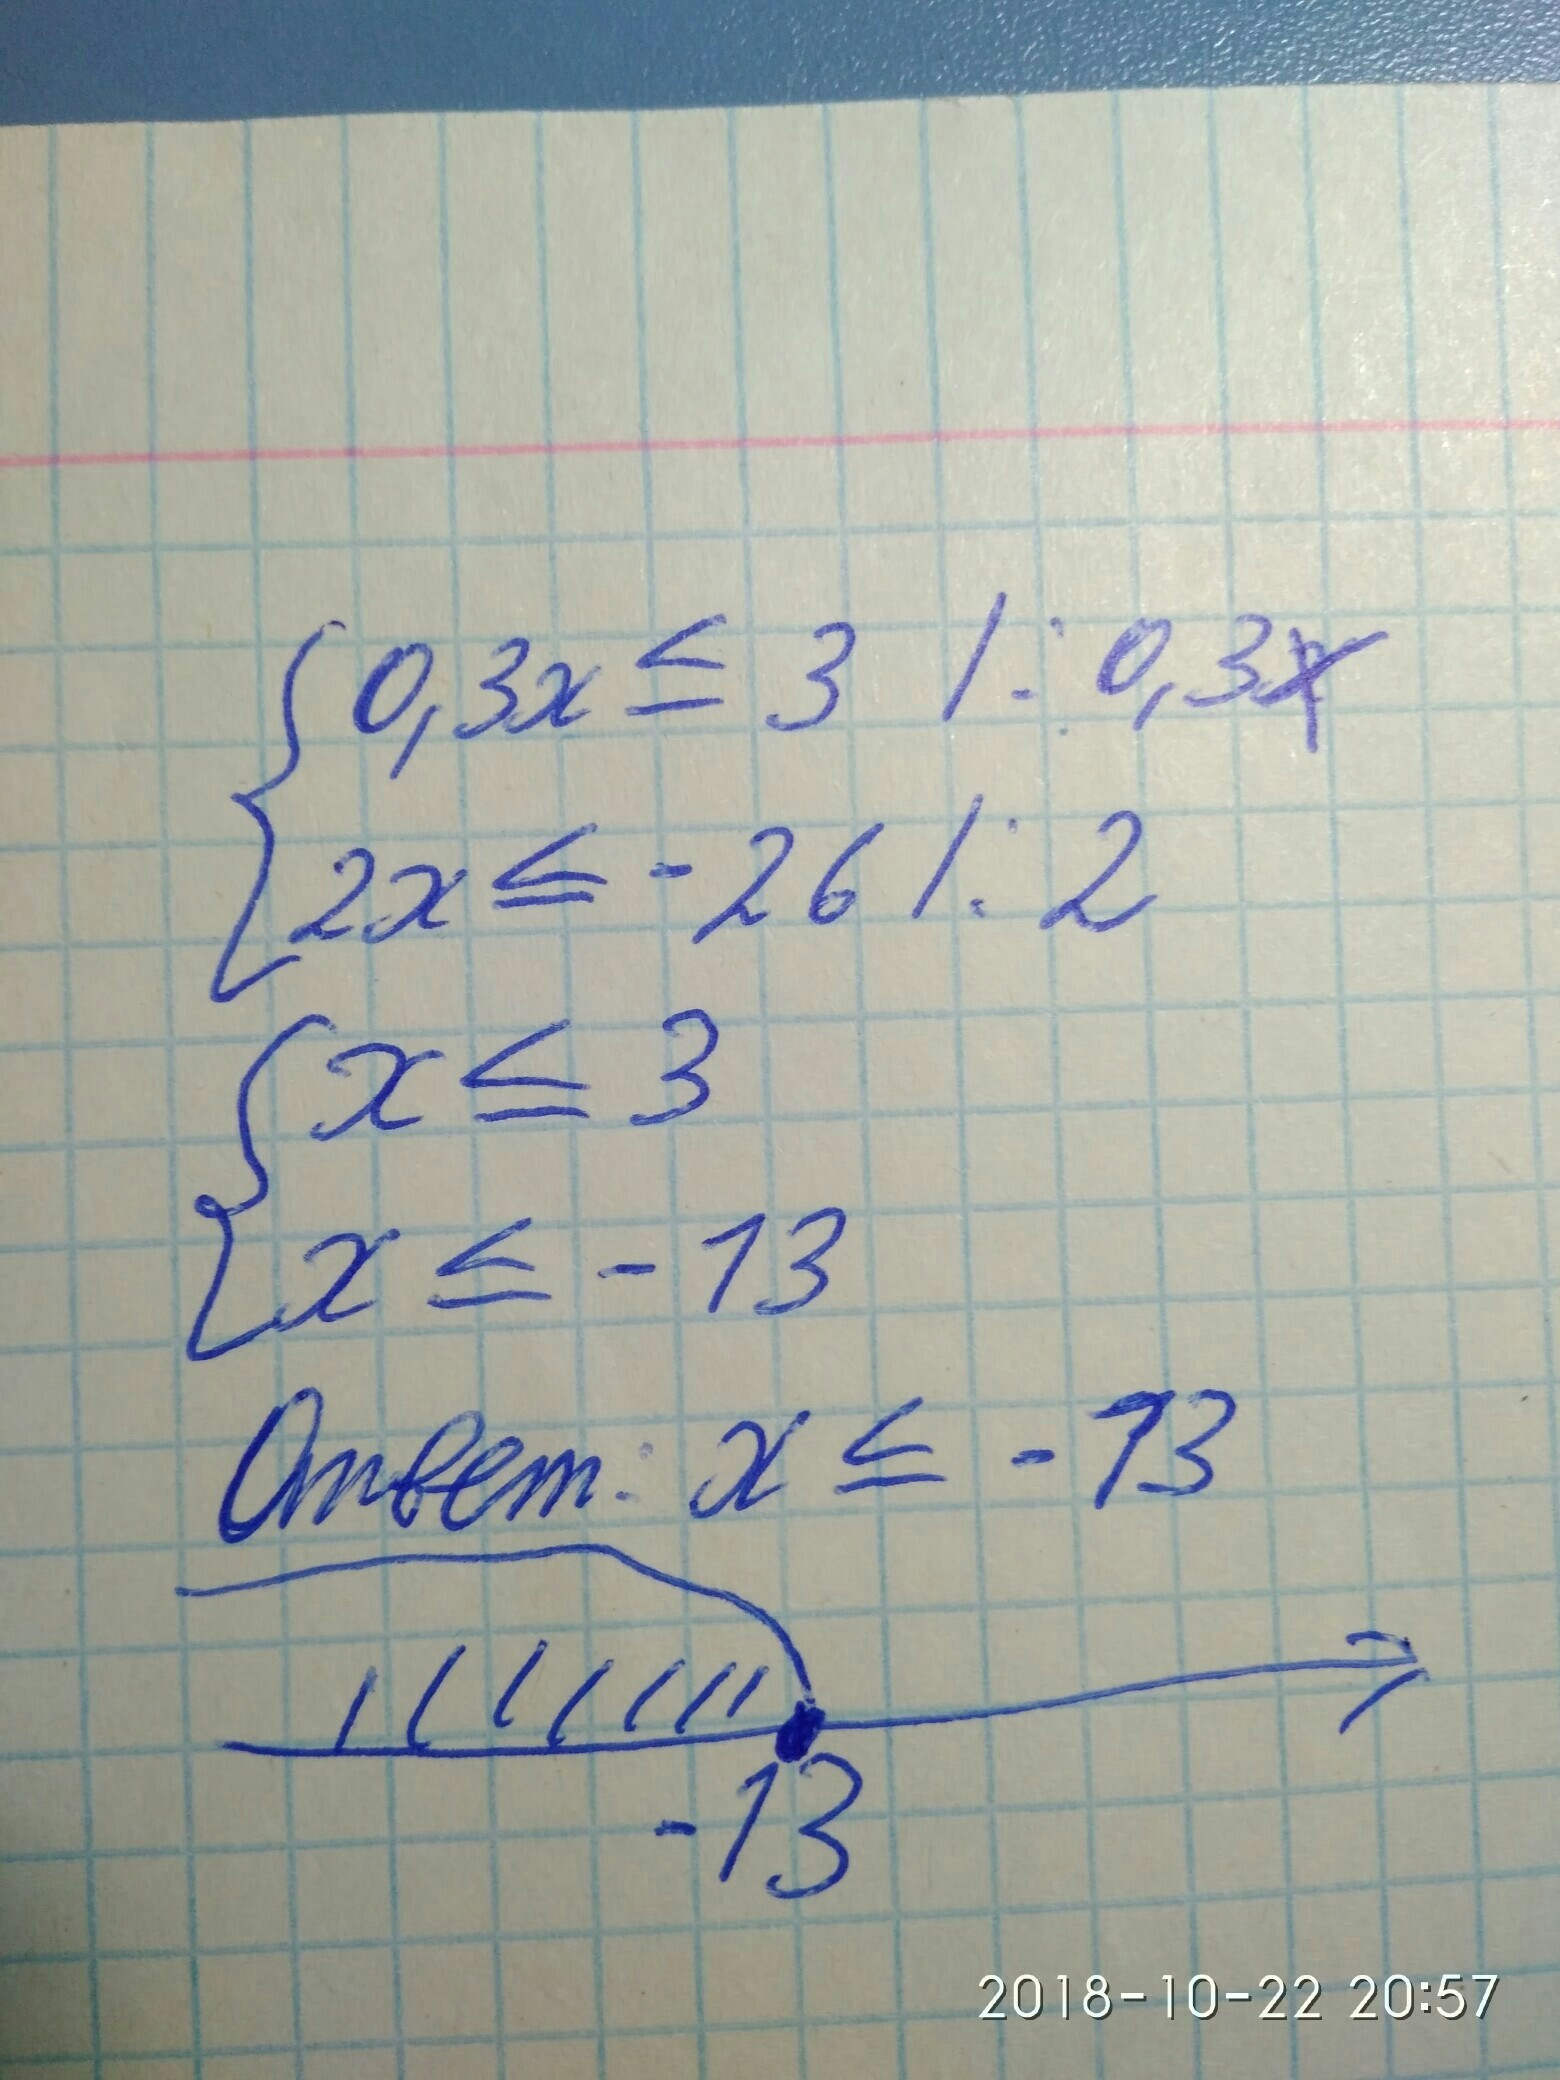 0,3x ≤ 3 | : 0,3x
2x ≤ -26 | : 2
x ≤ 3
x ≤ -13
Ответ: x ≤ -13
-13
2018-10-22 20:57